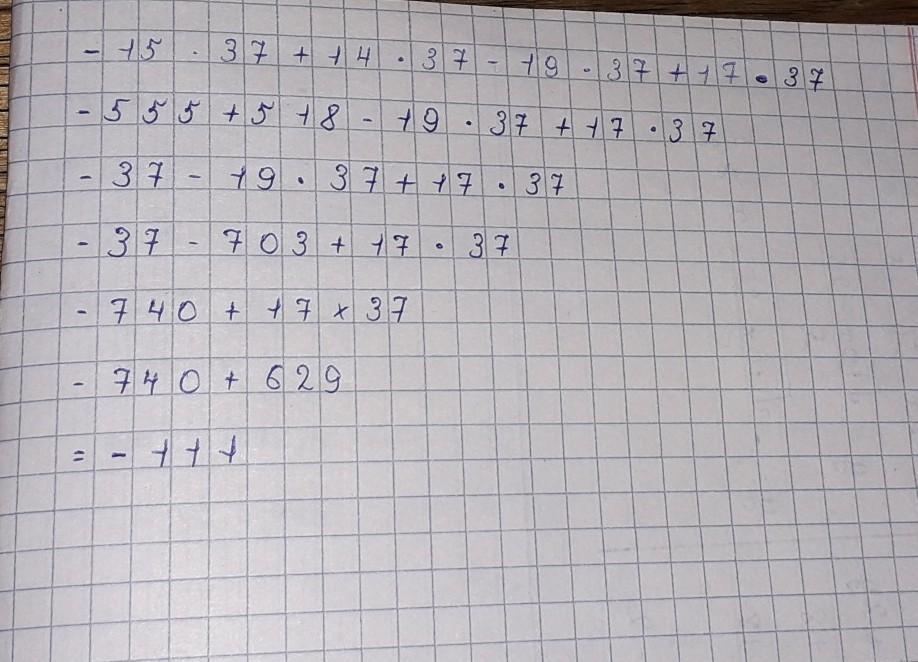 - 15 · 37 + 14 · 37 - 19 · 37 + 17 · 37
- 555 + 518 - 19 · 37 + 17 · 37
- 37 - 19 · 37 + 17 · 37
- 37 - 703 + 17 · 37
- 740 + 17 × 37
- 740 + 629
= - 111